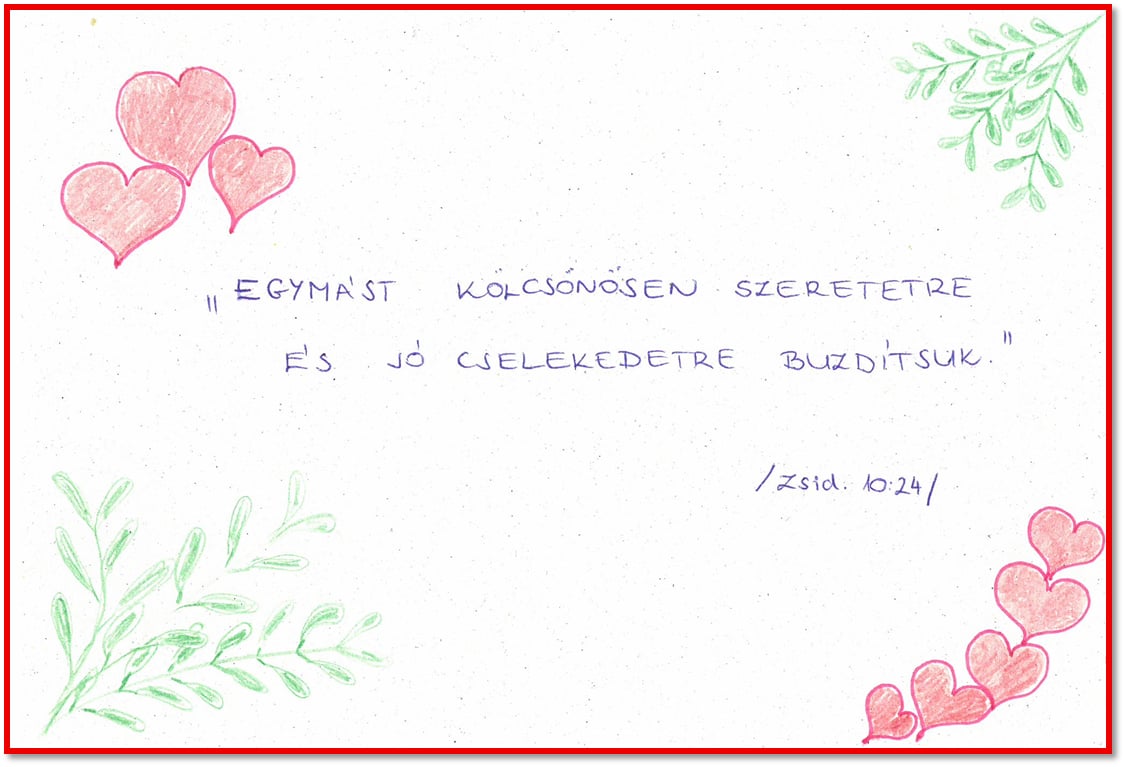 „EGYMÁST KÖLCSÖNÖSEN SZERETETRE
ÉS JÓ CSELEKEDETRE BUZDÍTSUK."
/Zsid. 10:24/